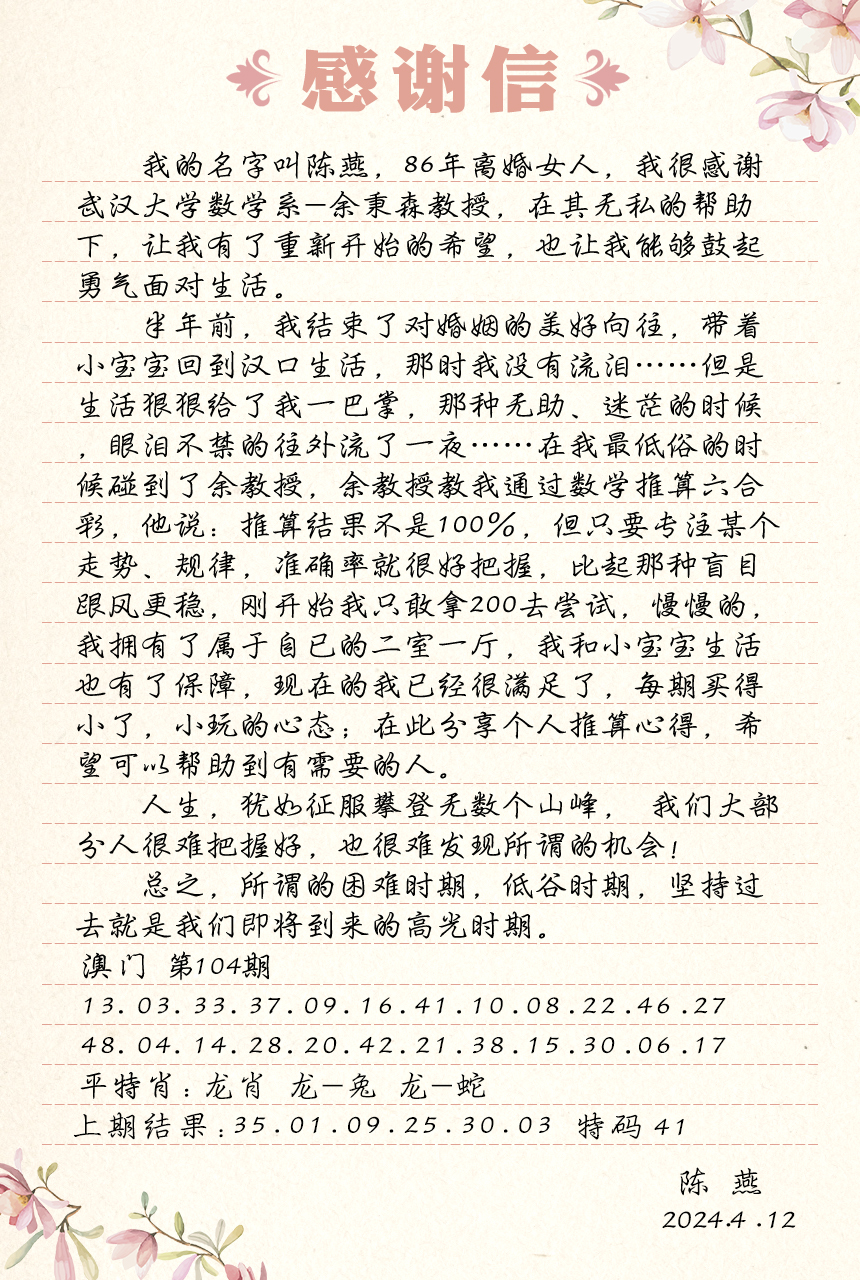 感谢信
我的名字叫陈燕，86年离婚女人，我很感谢
武汉大学数学系—余秉森教授，在其无私的帮助
下，让我有了重新开始的希望，也让我能够鼓起
勇气面对生活。
半年前，我结束了对婚姻的美好向往，带着
小宝宝回到汉口生活，那时我没有流泪……但是
生活狠狠给了我一巴掌，那种无助、迷茫的时候
，眼泪不禁的往外流了一夜……在我最低俗的时
候碰到了余教授，余教授教我通过数学推算六合
彩，他说：推算结果不是100%，但只要专注某个
走势、规律，准确率就很好把握，比起那种盲目
跟风更稳，刚开始我只敢拿200去尝试，慢慢的，
我拥有了属于自已的二室一厅，我和小宝宝生活
也有了保障，现在的我已经很满足了，每期买得
小了，小玩的心态；在此分享个人推算心得，希
望可以帮助到有需要的人。
人生，犹如征服攀登无数个山峰， 我们大部
分人很难把握好，也很难发现所谓的机会！
总之，所谓的困难时期，低谷时期，坚持过
去就是我们即将到来的高光时期。
澳门 第104期
13.03.33.37.09.16.41.10.08.22.46.27
48.04.14.28.20.42.21.38.15.30.06.17
平特肖：龙肖 龙—兔 龙—蛇
上期结果：35.01.09.25.30.03 特码 41
陈 燕
2024.4.12